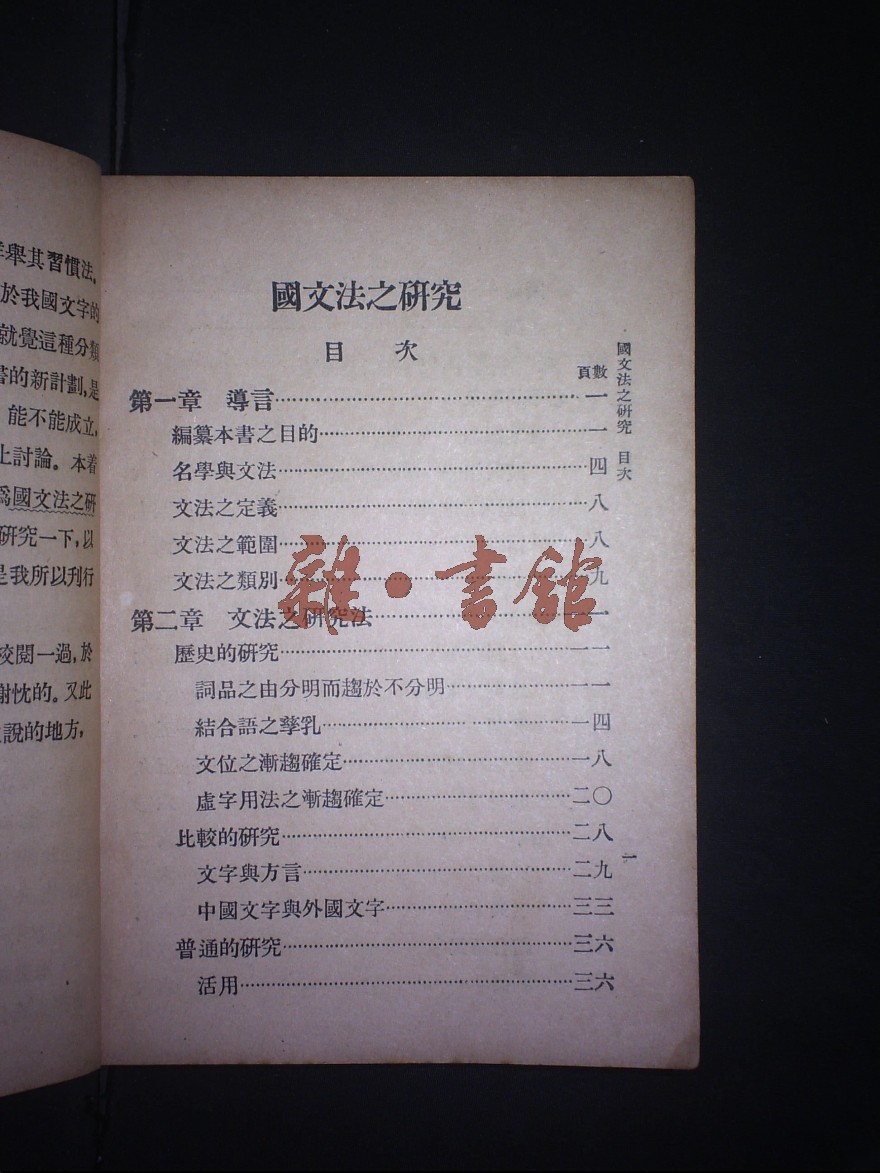 羊舉其習慣法。
於我國文字的
就覺這種分類
書的新計劃,是
能不能成立,
上討論。本着
爲國文法之研
研究一下,以
是我所以刊行
校閱一過,於
謝忱的。又此
說的地方,
國文法之研究
目 次
頁數
第一章 導言……一
編纂本書之目的……一
名學與文法……四
文法之定義……八
文法之範圍……八
文法之類別……九
第二章 文法之研究法……一一
歷史的研究……一一
詞品之由分明而趨於不分明……一一
結合語之孳乳……一四
文位之漸趨確定……一八
虛字用法之漸趨確定……二〇
比較的研究……二八
文字與方言……二九
中國文字與外國文字……三三
普通的研究……三六
活用……三六
國文法之研究 目次
一
雜·書館